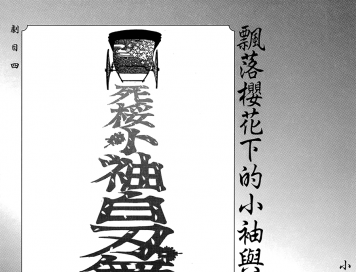 飄落櫻花下的小袖與
死桜小袖白刃
劇目四
小